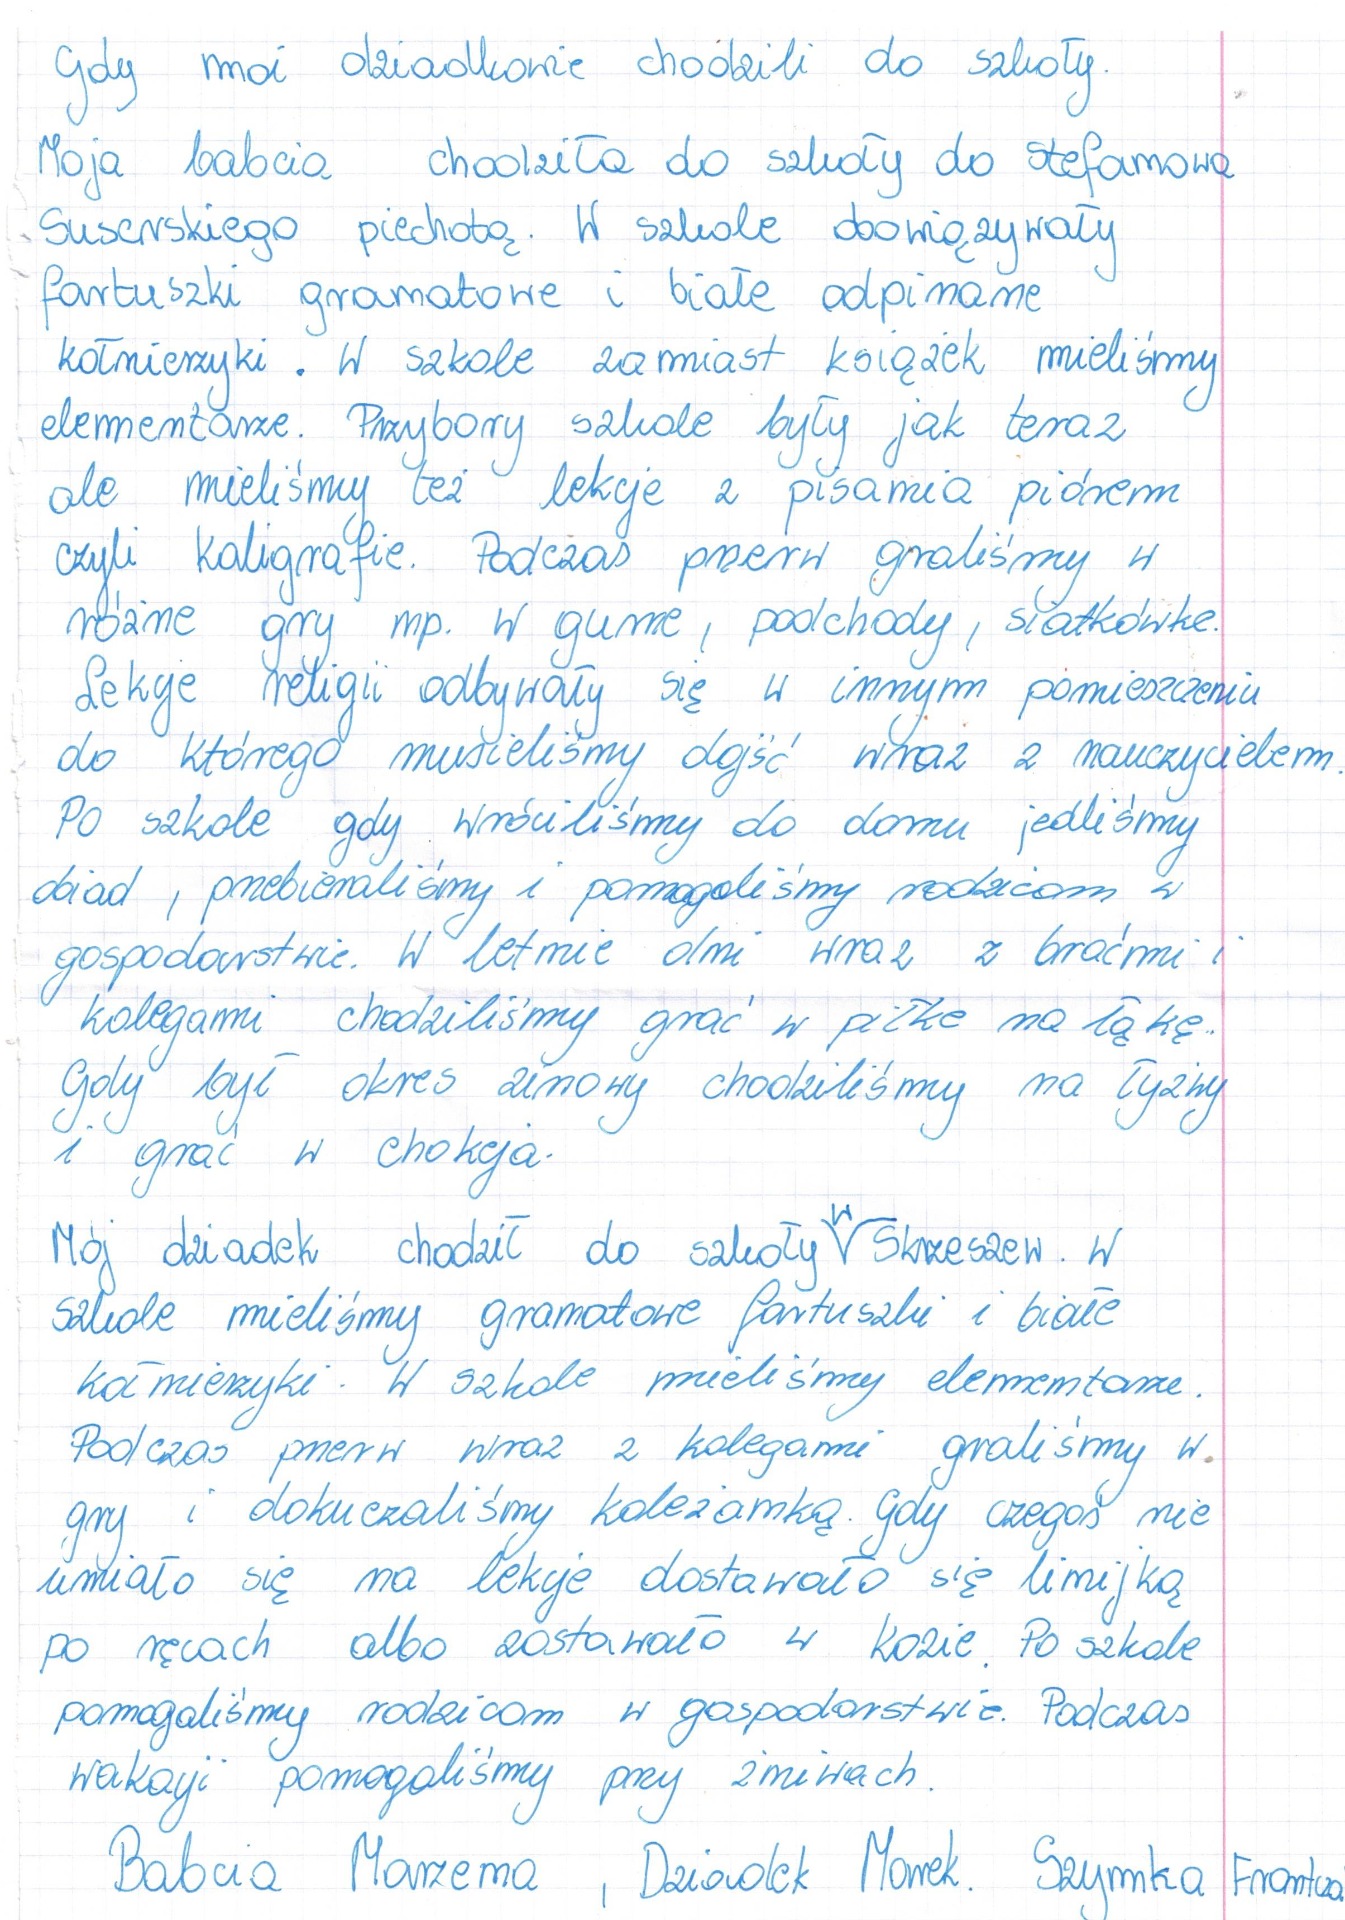 Gdy moi dziadkowie chodzili do szkoły.
Moja babcia chodziła do szkoły do Stefanowa
Suserskiego piechotą. W szkole obowiązywały
fartuszki granatowe i białe odpinane
kołnierzyki. W szkole zamiast książek mieliśmy
elementarze. Przybory szkole były jak teraz
ale mieliśmy też lekcje z pisania piórem
czyli kaligrafie. Podczas przerw graliśmy w
różne gry np. w gume, podchody, siatkówke.
Lekcje religii odbywały się w innym pomieszczeniu
do którego musieliśmy dojść wraz z nauczycielem.
Po szkole gdy wróciliśmy do domu jedliśmy
obiad, przebieraliśmy i pomagaliśmy rodzicom w
gospodarstwie. W letnie dni wraz z braćmi i
kolegami chodziliśmy grać w piłke na łąkę.
Gdy był okres zimowy chodziliśmy na łyżwy
i grać w chokeja.
Mój dziadek chodził do szkoły w Skrzeszew. W
szkole mieliśmy granatowe fartuszki i białe
kołnierzyki. W szkole mieliśmy elementarze.
Podczas przerw wraz z kolegami graliśmy w
gry i dokuczaliśmy koleżanką. Gdy czegoś nie
umiało się na lekcje dostawało się linijką
po ręcach albo zostawało w kozie. Po szkole
pomagaliśmy rodzicom w gospodarstwie. Podczas
wakacji pomagaliśmy przy żniwach.
Babcia Marzena, Dziadek Marek. Szymka